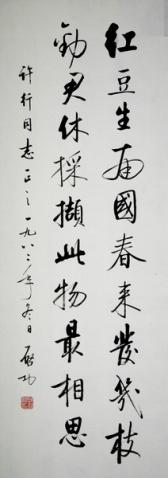 红豆生南國春来發幾枝
勸君休採擷此物最相思
許行同志正之一九八二年冬日啟功